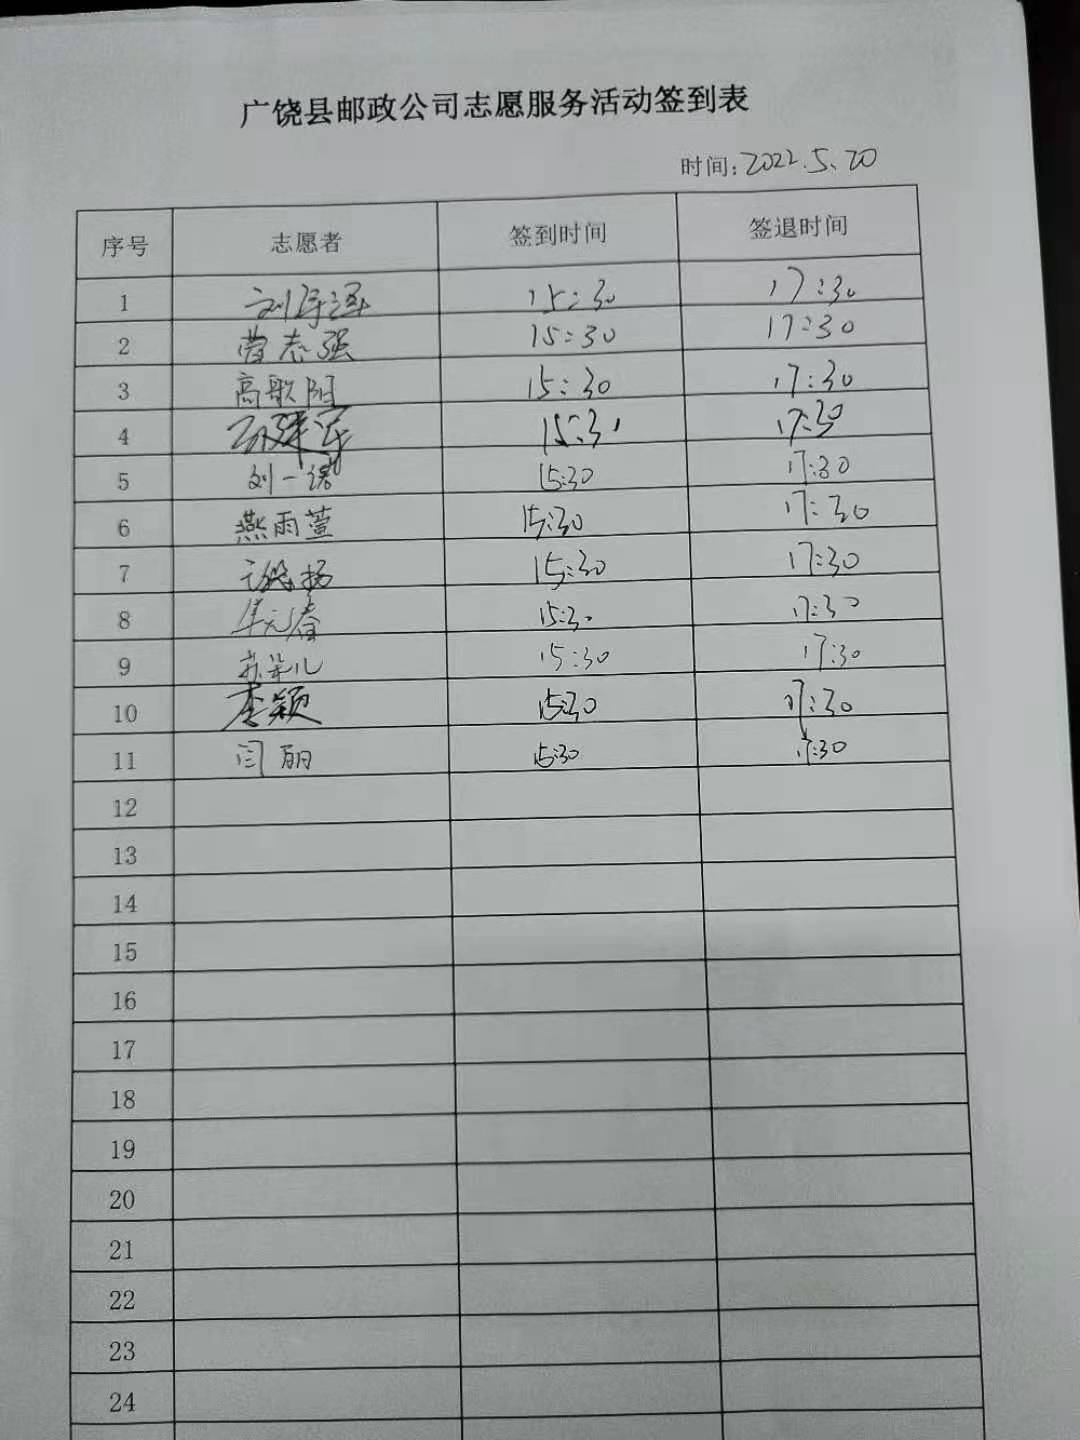 广饶县邮政公司志愿服务活动签到表
时间:2022.5.20
序号 志愿者 签到时间 签退时间
1 刘 15:30 17:30
2 曹志强 15:30 17:30
3 高歌阳 15:30 17:30
4 15:30 17:30
5 刘一诺 15:30 17:30
6 燕雨萱 15:30 17:30
7 15:30 17:30
8 单元春 15:30 17:30
9 苏朵儿 15:30 17:30
10 李颖 15:30 17:30
11 闫丽 15:30 17:30
12
13
14
15
16
17
18
19
20
21
22
23
24